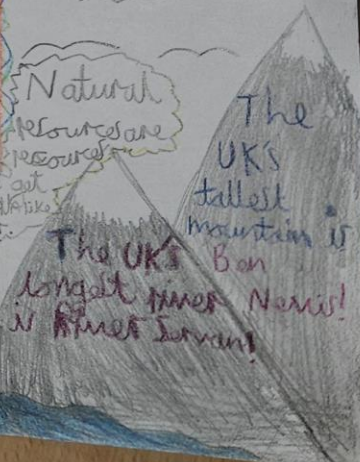 Natural
resources are
resources
get
like
The
UK's
tallest
mountain is
Ben
Nevis!
The UK's
longest river
is River Servan!